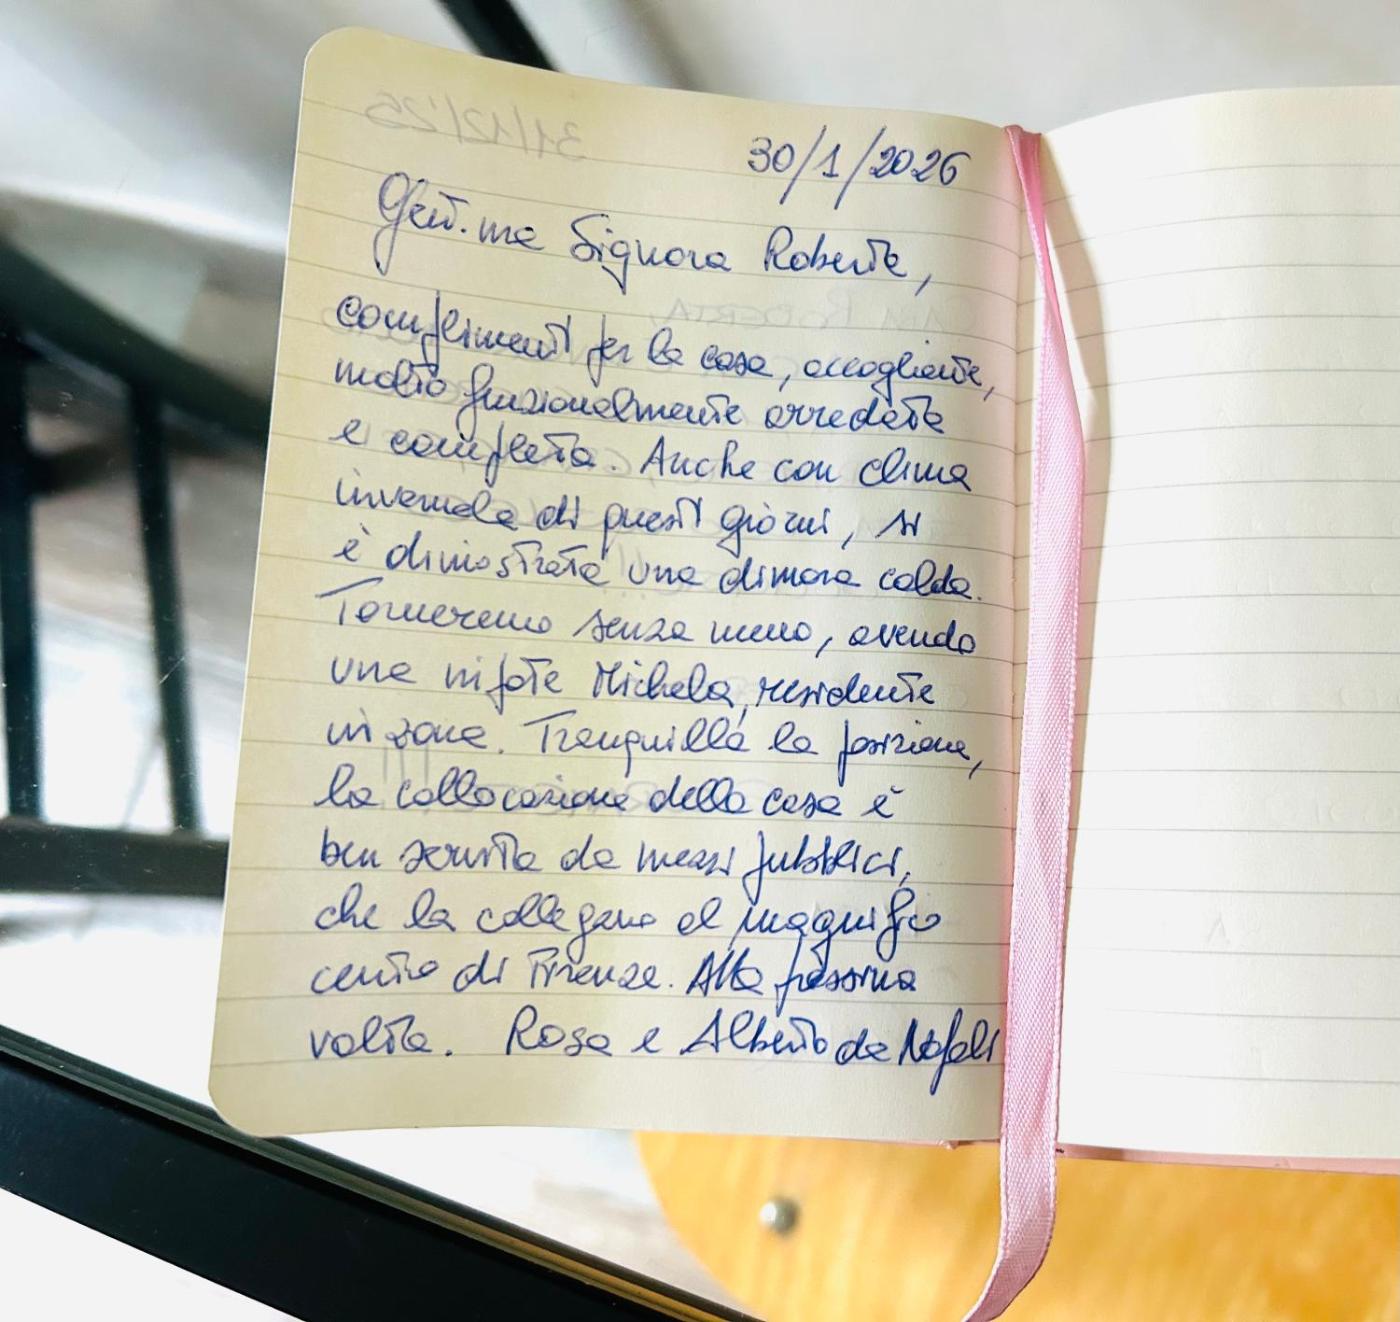 30/1/2026
Gent.ma Signora Roberta,
complimenti per la casa, accogliente,
molto funzionalmente arredata
e completa. Anche con clima
invernale di questi giorni, si
è dimostrata una dimora calda.
Torneremo senza meno, avendo
una nipote Michela, residente
in zona. Tranquilla la posizione,
la collocazione della casa è
ben servita da mezzi pubblici,
che la collegano al magnifico
centro di Firenze. Alla prossima
volta. Rosa e Alberto da Napoli
31/12/'25
CARA ROBERTA,